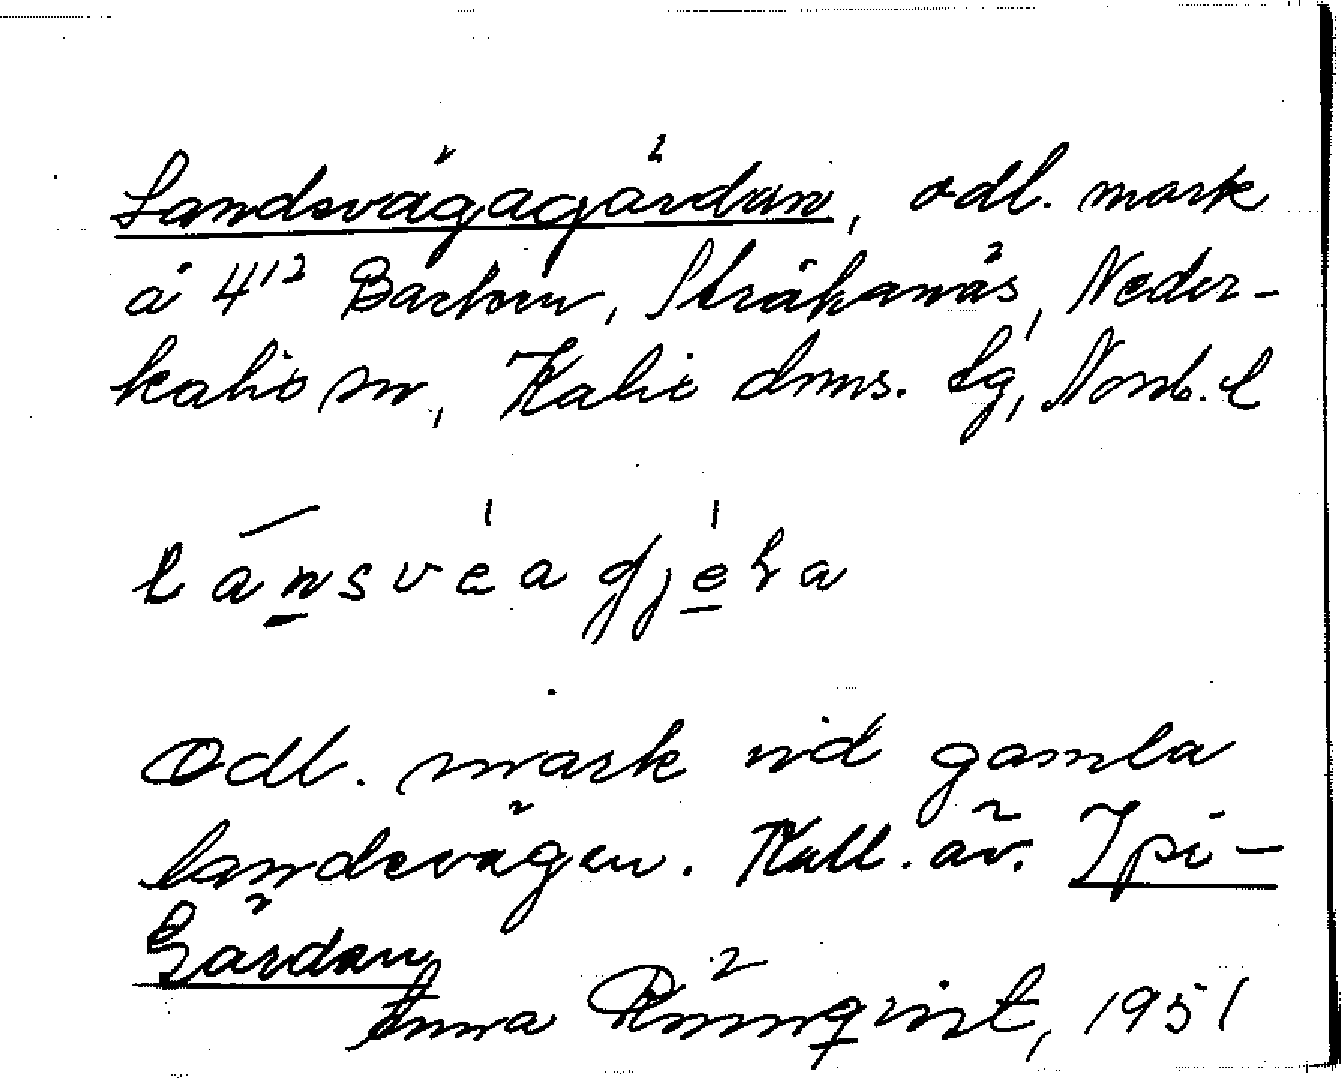 Landsvägagärdan, odl. mark
å 4¹² Backom, Stråkanäs, Neder-
kalix sn, Kalix dms. lg, Norrb. l
lánsvéagjéɽa
Odl. mark vid gamla
landsvägen. Kall. äv. Ipi-
Gärdan
Anna Rönnqvist, 1951